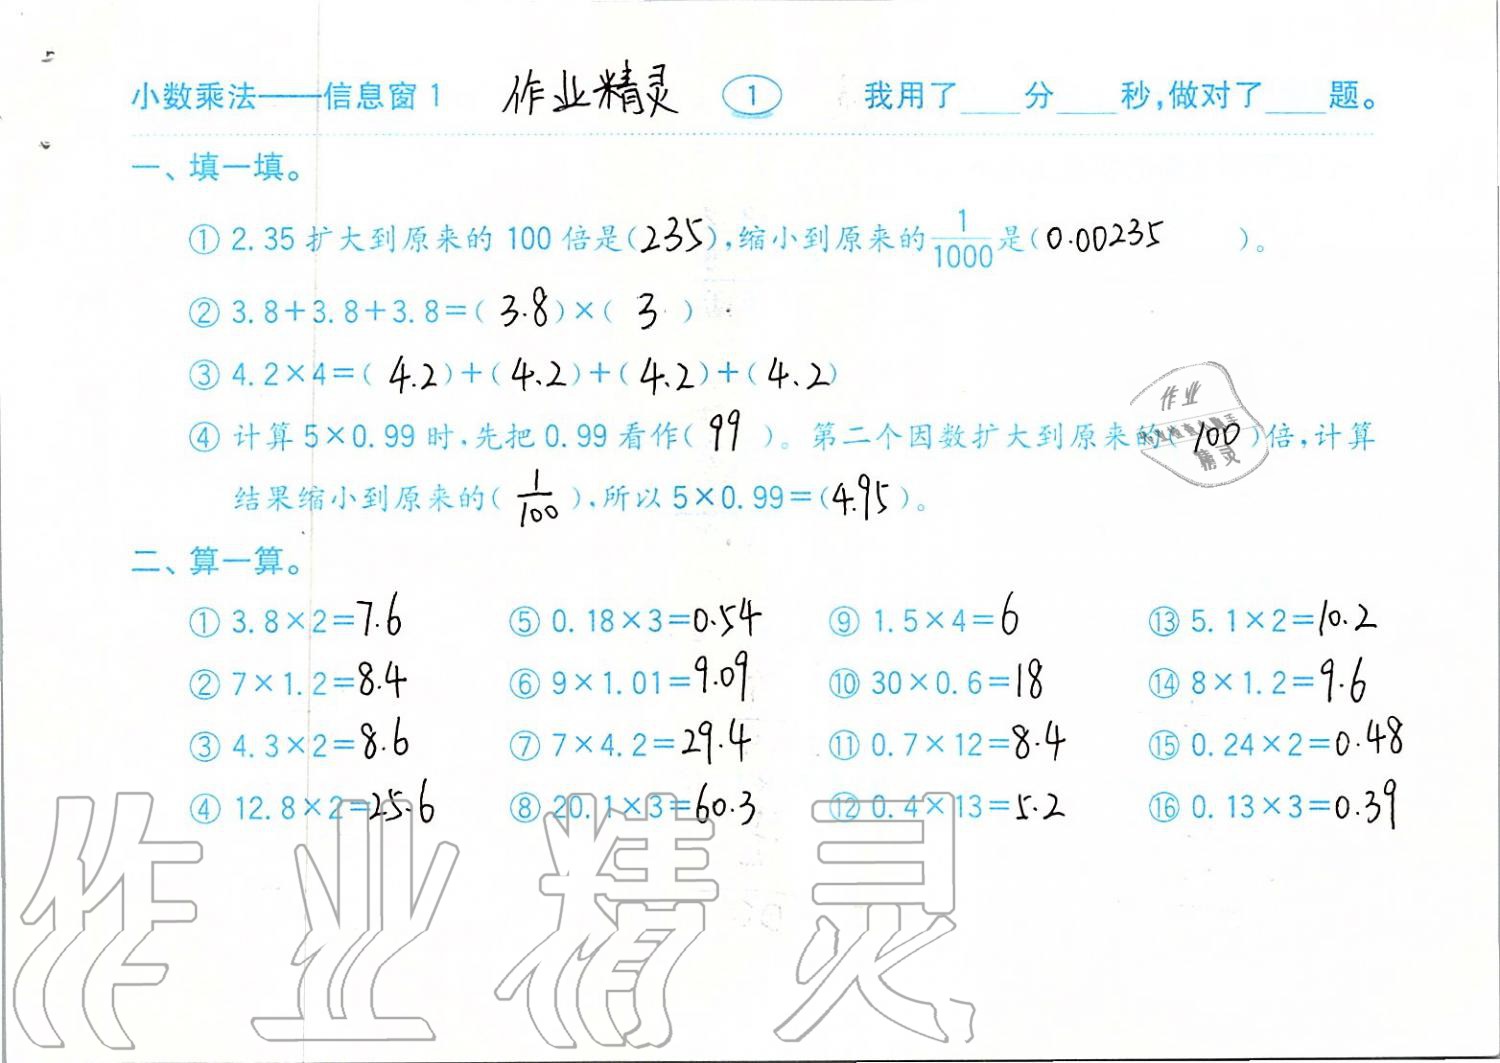 小数乘法——信息窗1 作业精灵 1 我用了____分____秒,做对了____题。
一、填一填。
① 2.35扩大到原来的100倍是(235),缩小到原来的1/1000是(0.00235)。
② 3.8+3.8+3.8=(3.8)×(3)
③ 4.2×4=(4.2)+(4.2)+(4.2)+(4.2)
④ 计算5×0.99时,先把0.99看作(99)。第二个因数扩大到原来的(100)倍,计算
结果缩小到原来的(1/100),所以5×0.99=(4.95)。
二、算一算。
① 3.8×2=7.6 ⑤ 0.18×3=0.54 ⑨ 1.5×4=6 ⑬ 5.1×2=10.2
② 7×1.2=8.4 ⑥ 9×1.01=9.09 ⑩ 30×0.6=18 ⑭ 8×1.2=9.6
③ 4.3×2=8.6 ⑦ 7×4.2=29.4 ⑪ 0.7×12=8.4 ⑮ 0.24×2=0.48
④ 12.8×2=25.6 ⑧ 20.1×3=60.3 ⑫ 0.4×13=5.2 ⑯ 0.13×3=0.39
作业精灵
作业
精灵